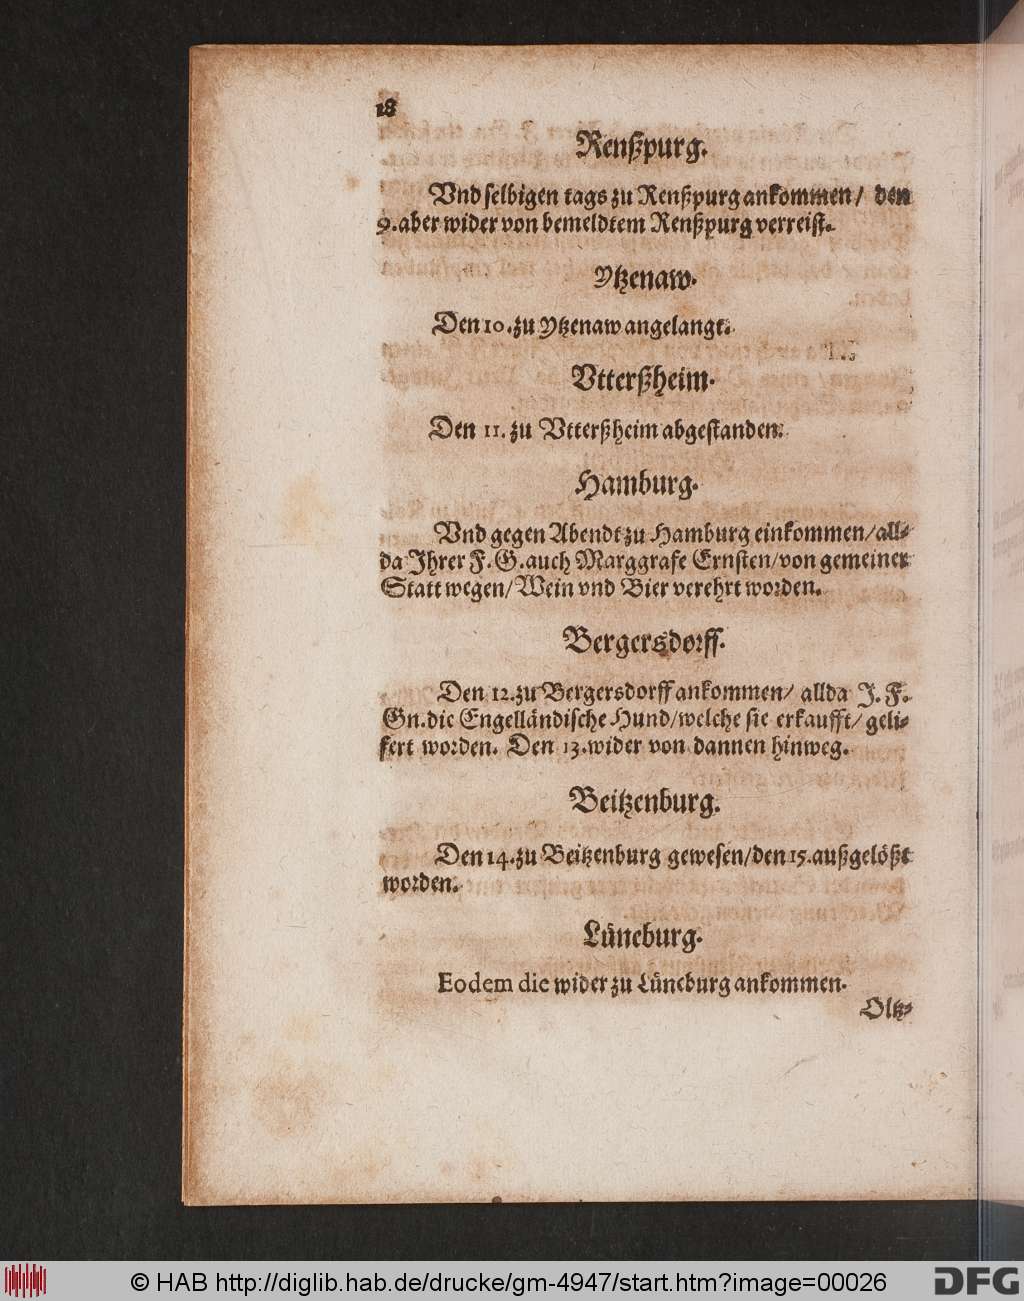 18
Renßpurg.
Vnd selbigen tags zu Renßpurg ankommen / den
9. aber wider von bemeldtem Renßpurg verreist.
Ytzenaw.
Den 10. zu Ytzenaw angelangt.
Vtterßheim.
Den 11. zu Vtterßheim abgestanden.
Hamburg.
Vnd gegen Abendt zu Hamburg einkommen / all-
da Ihrer F. G. auch Marggrafe Ernsten / von gemeiner
Statt wegen / Wein vnd Bier verehrt worden.
Bergersdorff.
Den 12. zu Bergersdorff ankommen / allda J. F.
Gn. die Engelländische Hund / welche sie erkaufft / geli-
fert worden. Den 13. wider von dannen hinweg.
Beitzenburg.
Den 14. zu Beitzenburg gewesen / den 15. außgelößt
worden.
Lüneburg.
Eodem die wider zu Lüneburg ankommen.
Oltz-
© HAB http://diglib.hab.de/drucke/gm-4947/start.htm?image=00026
DFG